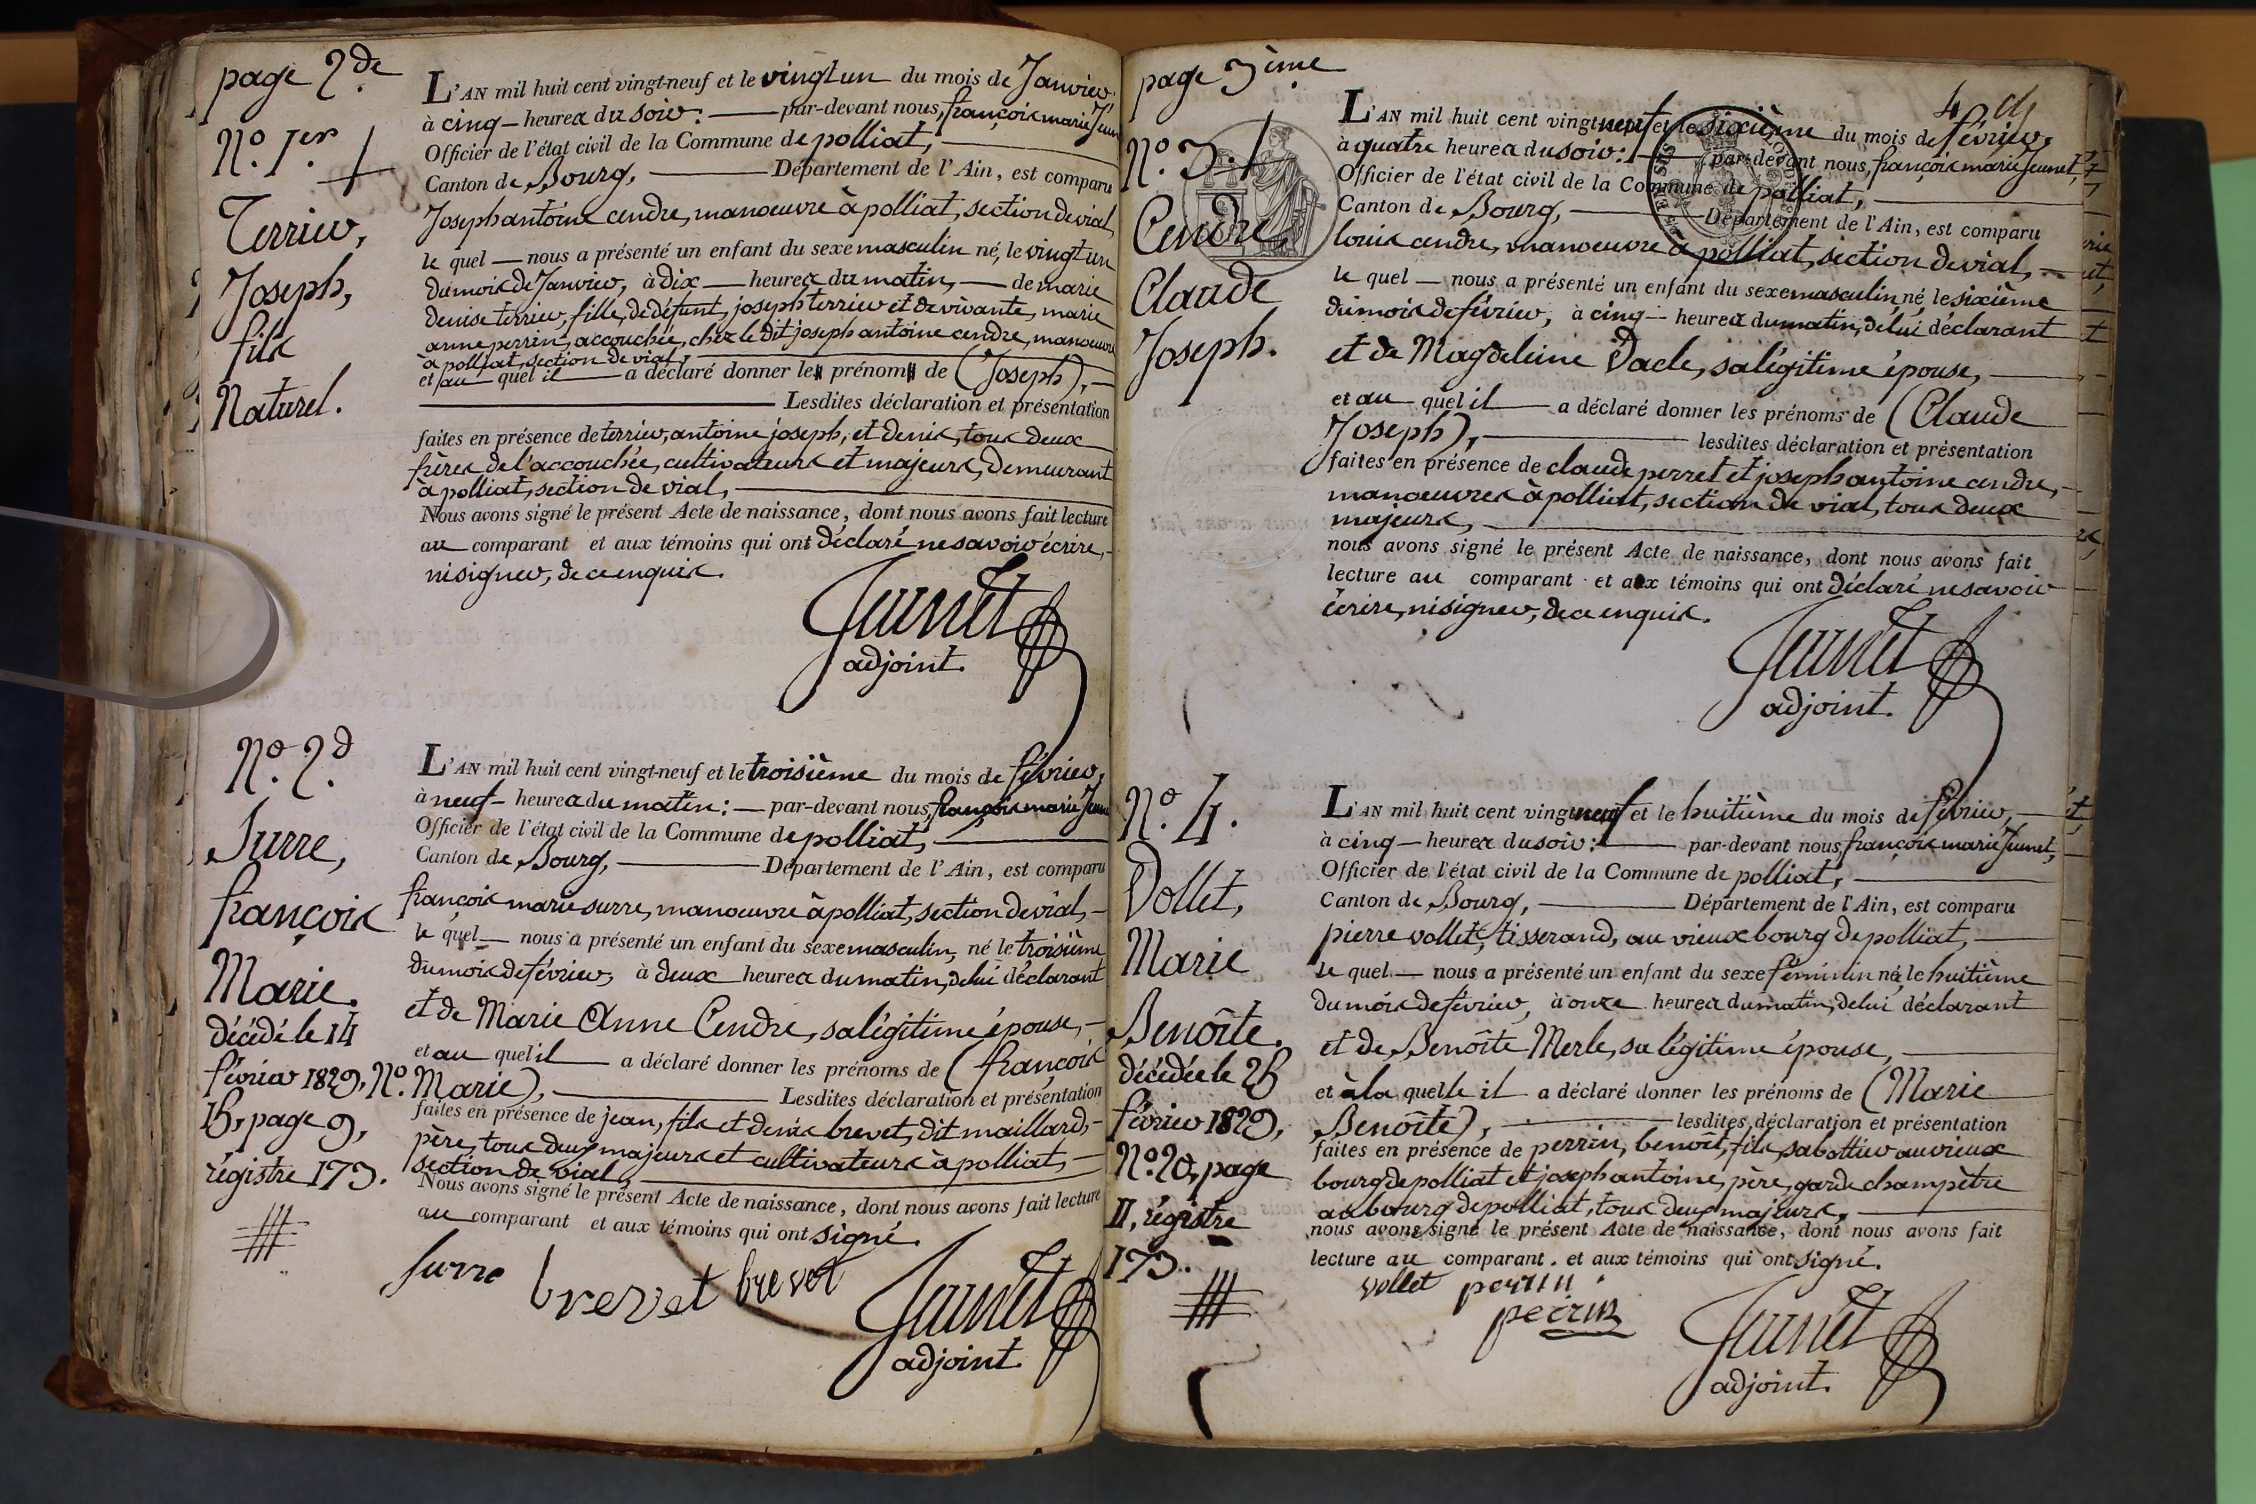 page 2de
N.o 1.er
Terrier,
Joseph,
fils
Naturel.
L'AN mil huit cent vingt-neuf et le vingt un du mois de Janvier
à cinq heures du soir: par-devant nous, françois marie Jeunet
Officier de l'état civil de la Commune de polliat,
Canton de Bourg, Département de l'Ain, est comparu
Joseph antoine cendre, manoeuvre à polliat, section de vial,
le quel nous a présenté un enfant du sexe masculin né, le vingt un
du mois de Janvier, à dix heures du matin, de marie
denise terrier, fille, de défunt, joseph terrier et de vivante, marie
anne perrin, accouchée, chez le dit joseph antoine cendre, manoeuvre
à polliat, section de vial,
et au quel il a déclaré donner le prénom de (Joseph),
Lesdites déclaration et présentation
faites en présence de terrier, antoine joseph, et denis, tous deux
frères de l'accouchée, cultivateurs et majeurs, demeurant
à polliat, section de vial,
Nous avons signé le présent Acte de naissance, dont nous avons fait lecture
au comparant et aux témoins qui ont déclaré ne savoir écrire,
ni signer, de ce enquis.
Jeunet
adjoint.
N.o 2.d
Surre,
françois
Marie.
décédé le 14
février 1829, N.o
15, page 9,
régistre 173.
L'AN mil huit cent vingt-neuf et le troisième du mois de février,
à neuf heures du matin: par-devant nous, françois marie Jeunet
Officier de l'état civil de la Commune de polliat,
Canton de Bourg, Département de l'Ain, est comparu
françois marie surre, manoeuvre à polliat, section de vial,
le quel nous a présenté un enfant du sexe masculin, né le troisième
du mois de février, à deux heures du matin, de lui déclarant
et de Marie Anne Cendre, sa légitime épouse,
et au quel il a déclaré donner les prénoms de (françois
Marie), Lesdites déclaration et présentation
faites en présence de jean, fils et denis brevet, dit maillard,
père, tous deux majeurs et cultivateurs à polliat,
section de vial,
Nous avons signé le présent Acte de naissance, dont nous avons fait lecture
au comparant et aux témoins qui ont signé.
surre brevet brevet
Jeunet
adjoint.
page 3ème
4
N.o 3.
Cendre,
Claude
Joseph.
L'AN mil huit cent vingt neuf et le sixième du mois de février,
à quatre heures du soir: par-devant nous, françois marie Jeunet,
Officier de l'état civil de la Commune de polliat,
Canton de Bourg, Département de l'Ain, est comparu
louis cendre, manoeuvre à polliat, section de vial,
le quel nous a présenté un enfant du sexe masculin, né, le sixième
du mois de février, à cinq heures du matin, de lui déclarant
et de Magdeleine Vacle, sa légitime épouse,
et au quel il a déclaré donner les prénoms de (Claude
Joseph), lesdites déclaration et présentation
faites en présence de claude perret et joseph antoine cendre,
manoeuvres à polliat, section de vial, tous deux
majeurs,
nous avons signé le présent Acte de naissance, dont nous avons fait
lecture au comparant et aux témoins qui ont déclaré ne savoir
écrire, ni signer, de ce enquis.
Jeunet
adjoint.
N.o 4.
Vollet,
Marie
Benoîte.
décédée le 25
février 1829,
N.o 20, page
11, régistre
173.
L'AN mil huit cent vingt neuf et le huitième du mois de février,
à cinq heures du soir: par-devant nous, françois marie Jeunet,
Officier de l'état civil de la Commune de polliat,
Canton de Bourg, Département de l'Ain, est comparu
pierre vollet, tisserand, au vieux bourg de polliat,
le quel nous a présenté un enfant du sexe féminin né, le huitième
du mois de février, à onze heures du matin, de lui déclarant
et de Benoîte Merle, sa légitime épouse,
et à la quelle il a déclaré donner les prénoms de (Marie
Benoîte), lesdites déclaration et présentation
faites en présence de perrin, benoît, fils, sabottier au vieux
bourg de polliat et joseph antoine, père, garde champètre
au bourg de polliat, tous deux majeurs,
nous avons signé le présent Acte de naissance, dont nous avons fait
lecture au comparant et aux témoins qui ont signé.
vollet perrin
perrin
Jeunet
adjoint.